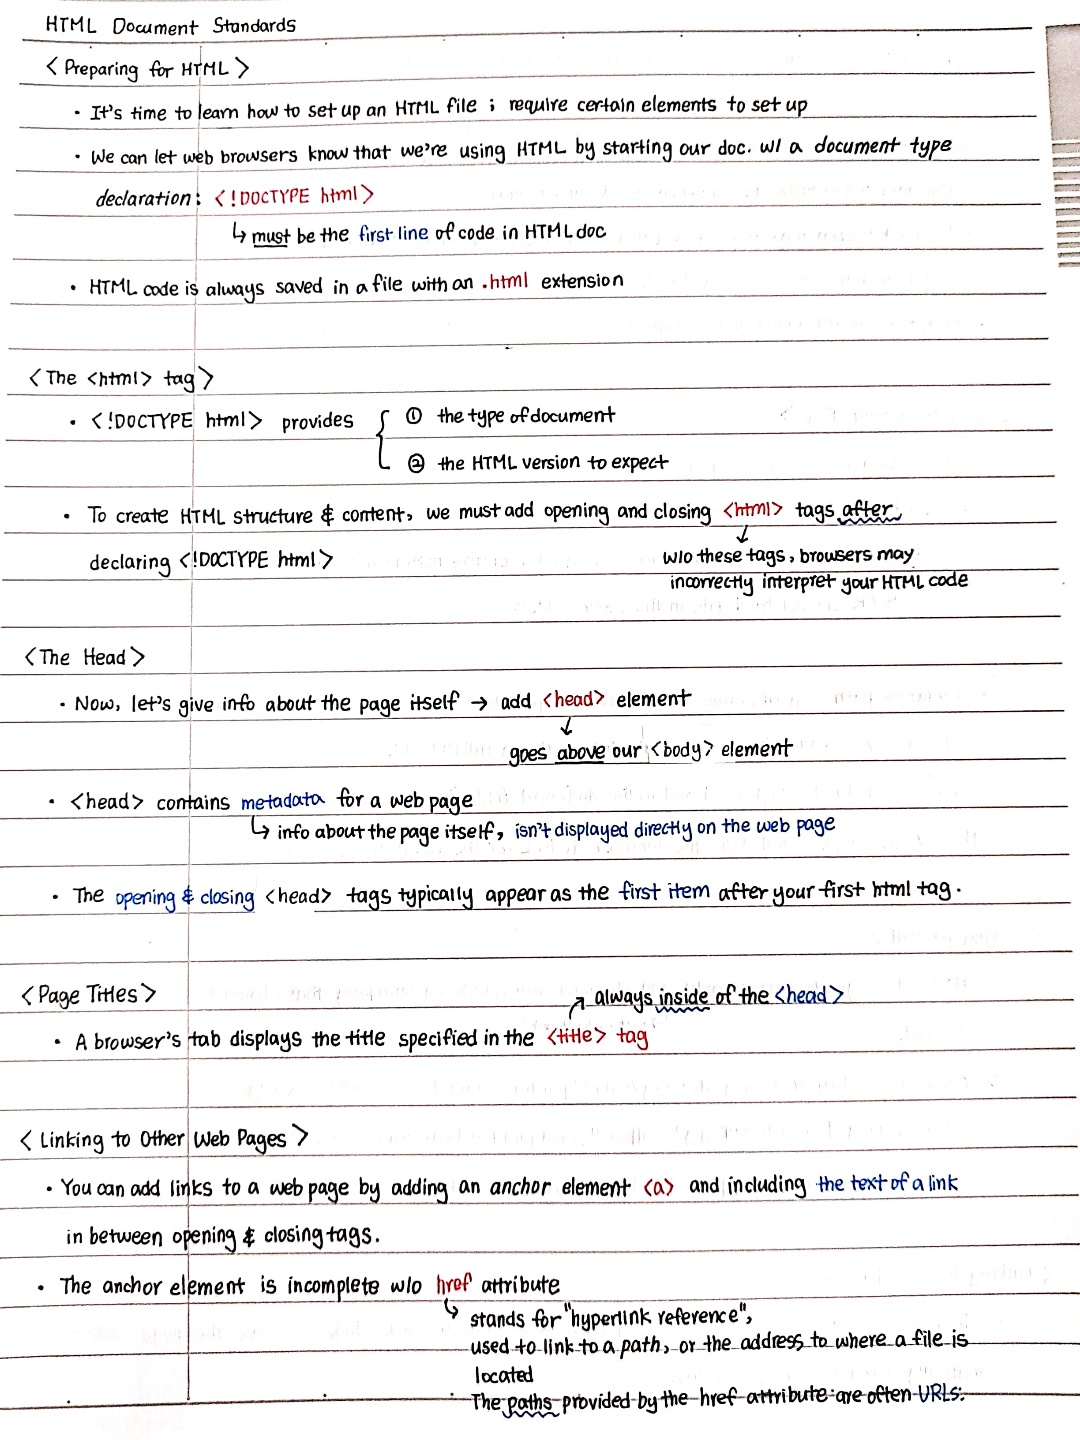 HTML Document Standards
<Preparing for HTML>
• It's time to learn how to set up an HTML file ; require certain elements to set up
• We can let web browsers know that we're using HTML by starting our doc. w/ a document type
declaration: <!DOCTYPE html>
↳ must be the first line of code in HTML doc
• HTML code is always saved in a file with an .html extension
<The <html> tag>
• <!DOCTYPE html> provides { ① the type of document
② the HTML version to expect
• To create HTML structure & content, we must add opening and closing <html> tags after
declaring <!DOCTYPE html>
↓
w/o these tags, browsers may
incorrectly interpret your HTML code
<The Head>
• Now, let's give info about the page itself → add <head> element
↓
goes above our <body> element
• <head> contains metadata for a web page
↳ info about the page itself, isn't displayed directly on the web page
• The opening & closing <head> tags typically appear as the first item after your first html tag.
<Page Titles>
↗ always inside of the <head>
• A browser's tab displays the title specified in the <title> tag
<Linking to Other Web Pages>
• You can add links to a web page by adding an anchor element <a> and including the text of a link
in between opening & closing tags.
• The anchor element is incomplete w/o href attribute
↳ stands for "hyperlink reference",
used to link to a path, or the address to where a file is
located
The paths provided by the href attribute are often URLs.